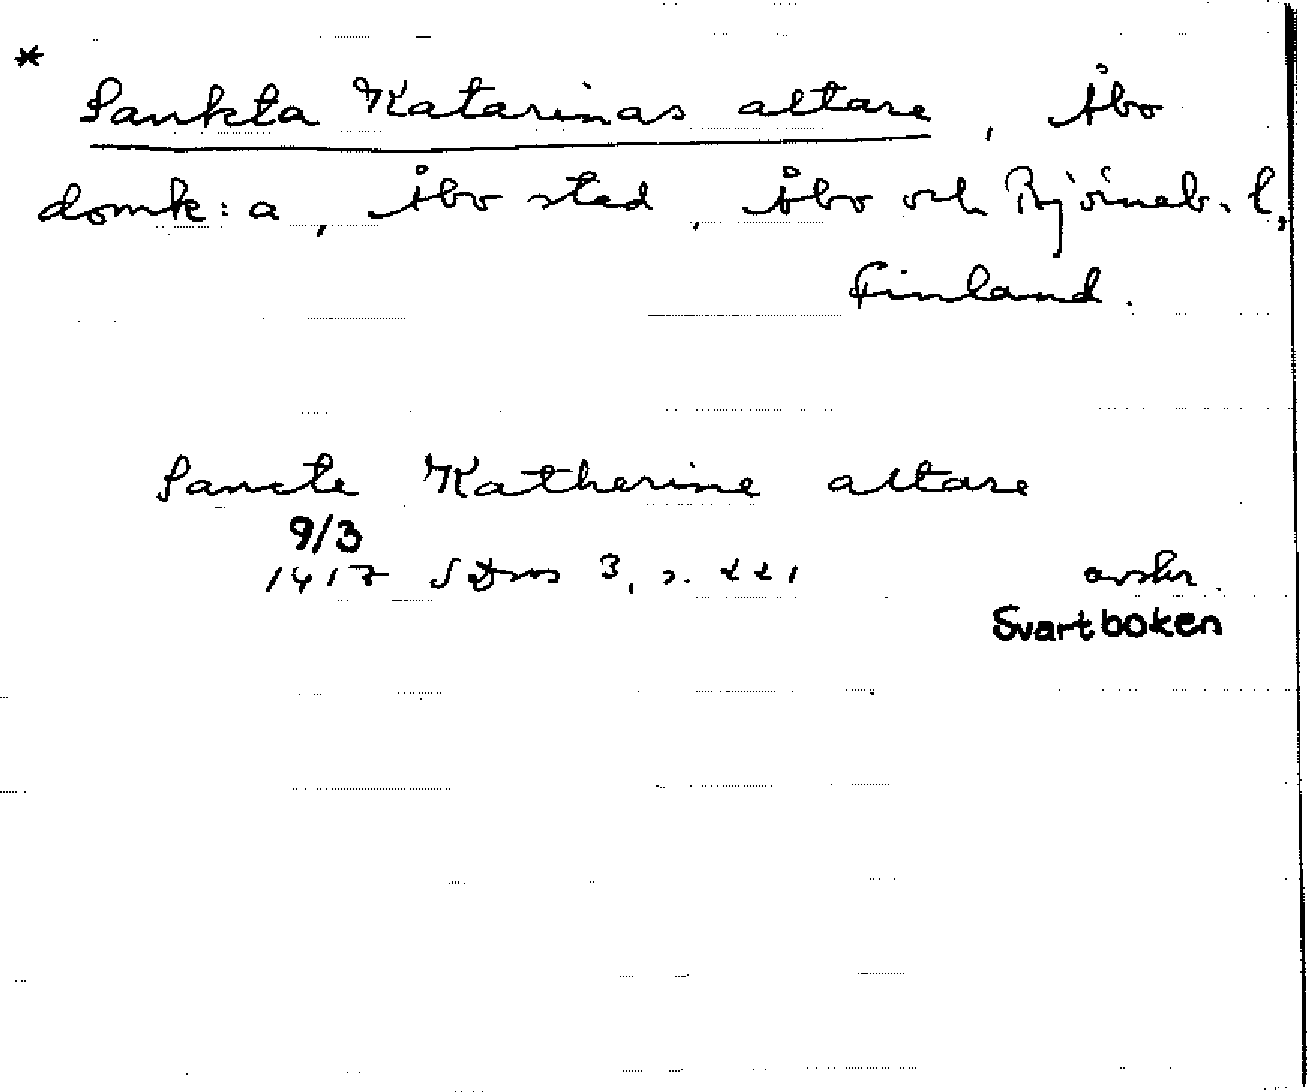 *
Sankta Katarinas altare, Åbo
domk:a, Åbo stad, Åbo och Björneb. l,
Finland.
Sancte Katherine altare
9/3
1417 SDns 3, s. 221 avskr.
Svartboken